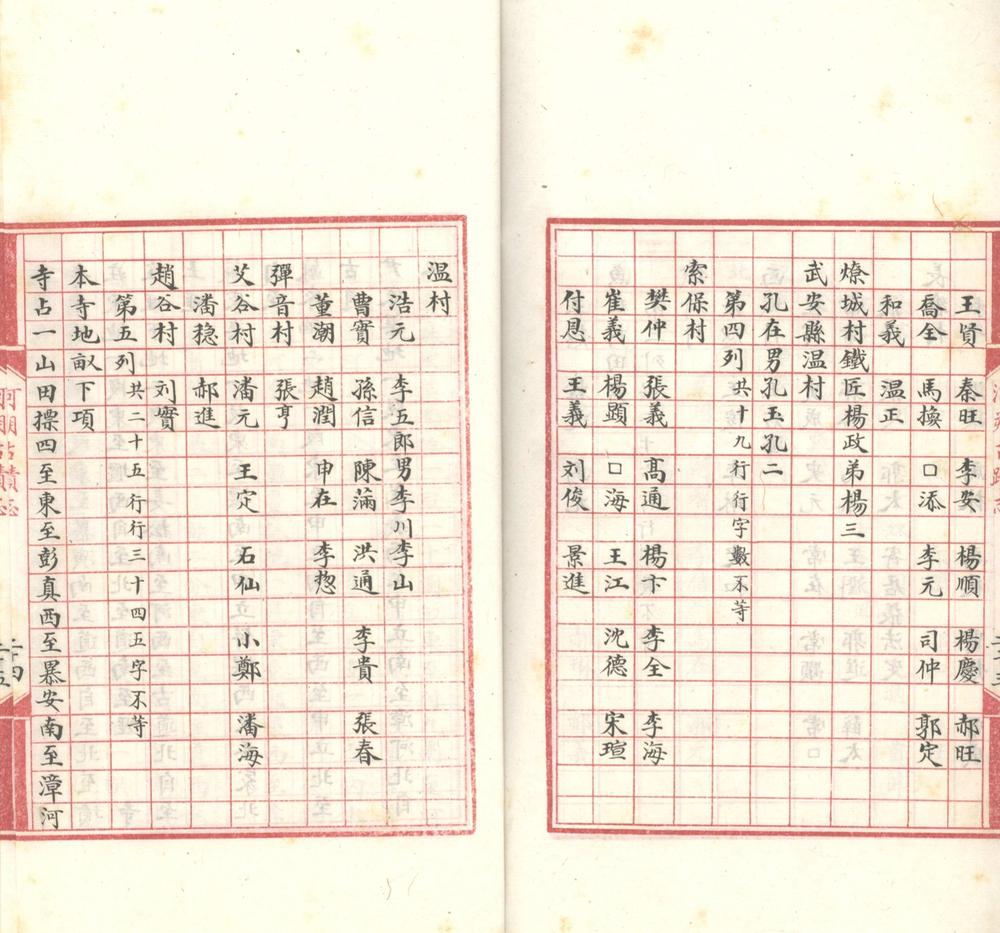 王賢 秦旺 李安 楊順 楊慶 郝旺
喬全 馬換 口添 李元 司仲 郭定
和義 温正
燎城村鐵匠楊政弟楊三
武安縣温村
孔在男孔玉孔二
第四列共十九行行字數不等
索保村
樊仲 張義 髙通 楊卞 李全 李海
崔義 楊顕 口海 王江 沈德 宋瑄
付恩 王義 刘俊 景進
温村
浩元 李五郎男李川李山
曹實 孫信 陳滿 洪通 李貴 張春
董潮 趙潤 申在 李惣
彈音村 張亨
艾谷村 潘元 王定 石仙 小鄭 潘海
潘穏 郝進
趙谷村 刘實
第五列共二十五行行三十四五字不等
本寺地畝下項
寺占一山田摽四至東至彭真西至暴安南至漳河